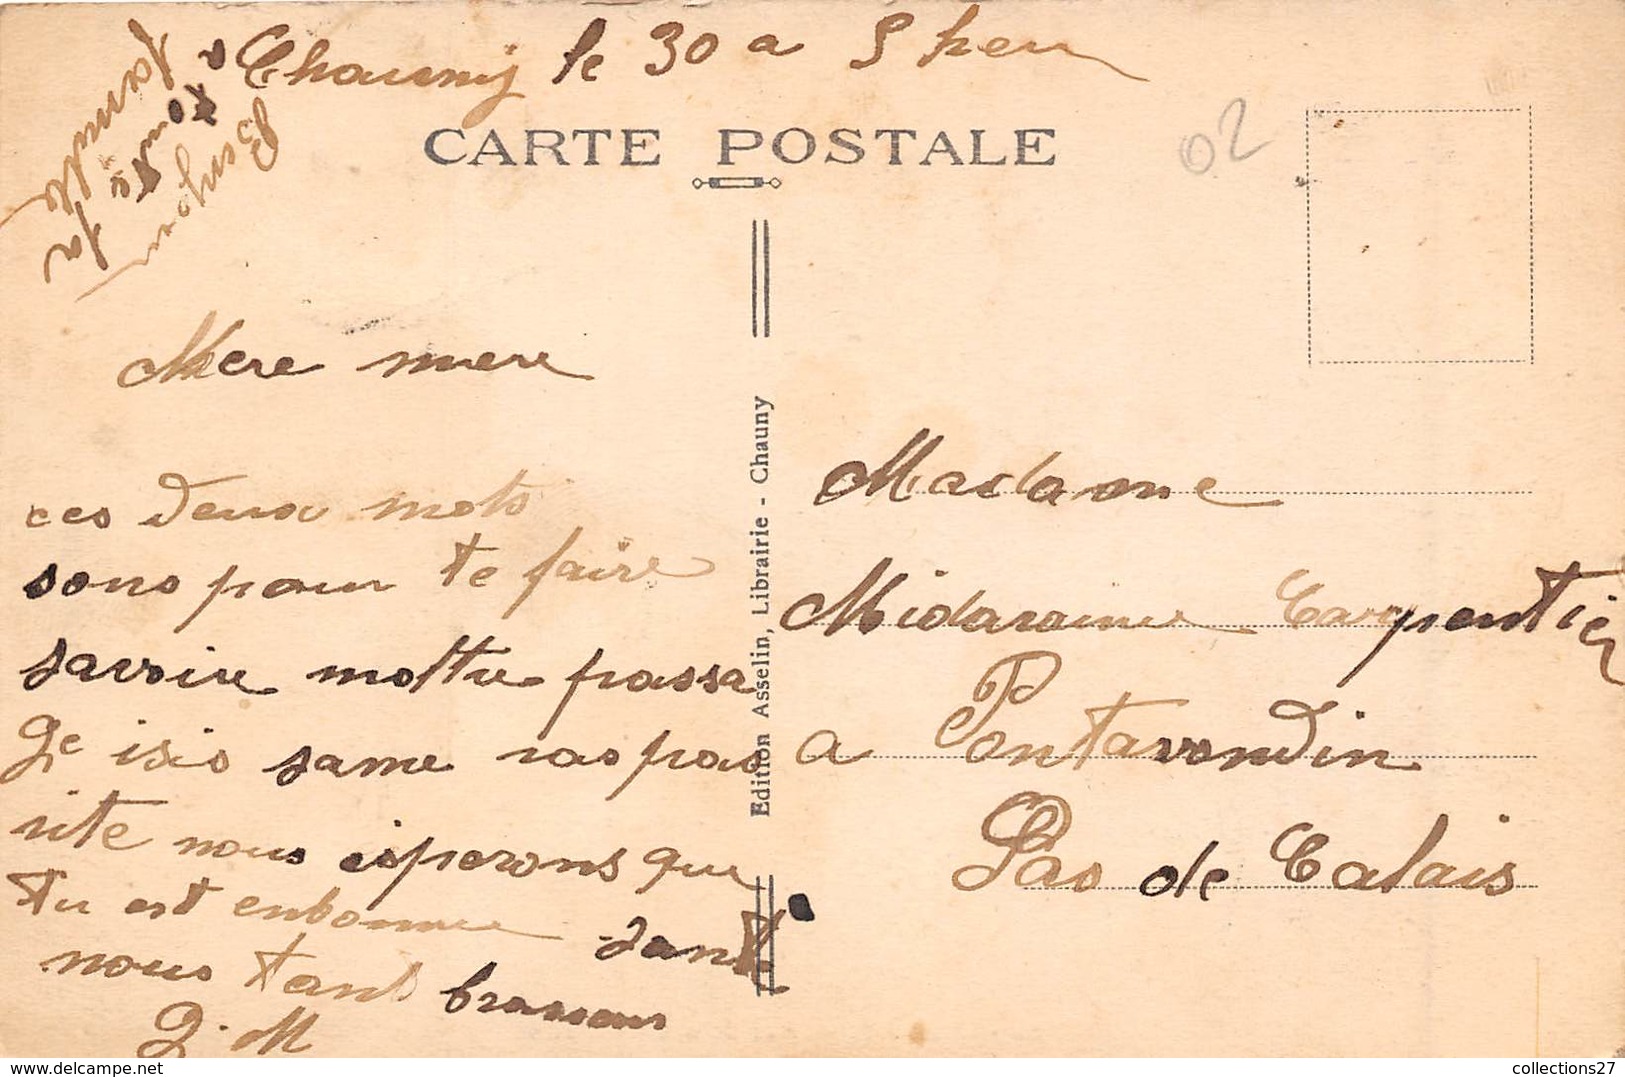 Chauny le 30 a 5 heu
Bonjour
a toute
la
famille
CARTE POSTALE
02
Mere mere
ces deux mots
sons pour te faire
savoire mottre passa
ge isis same
vite nous esperons que
tu est enbonne santé
nous tant brassons
J. M
Edition Asselin, Librairie - Chauny
Madame
Carpentier
a Pontavendin
Pas de Calais
collections27